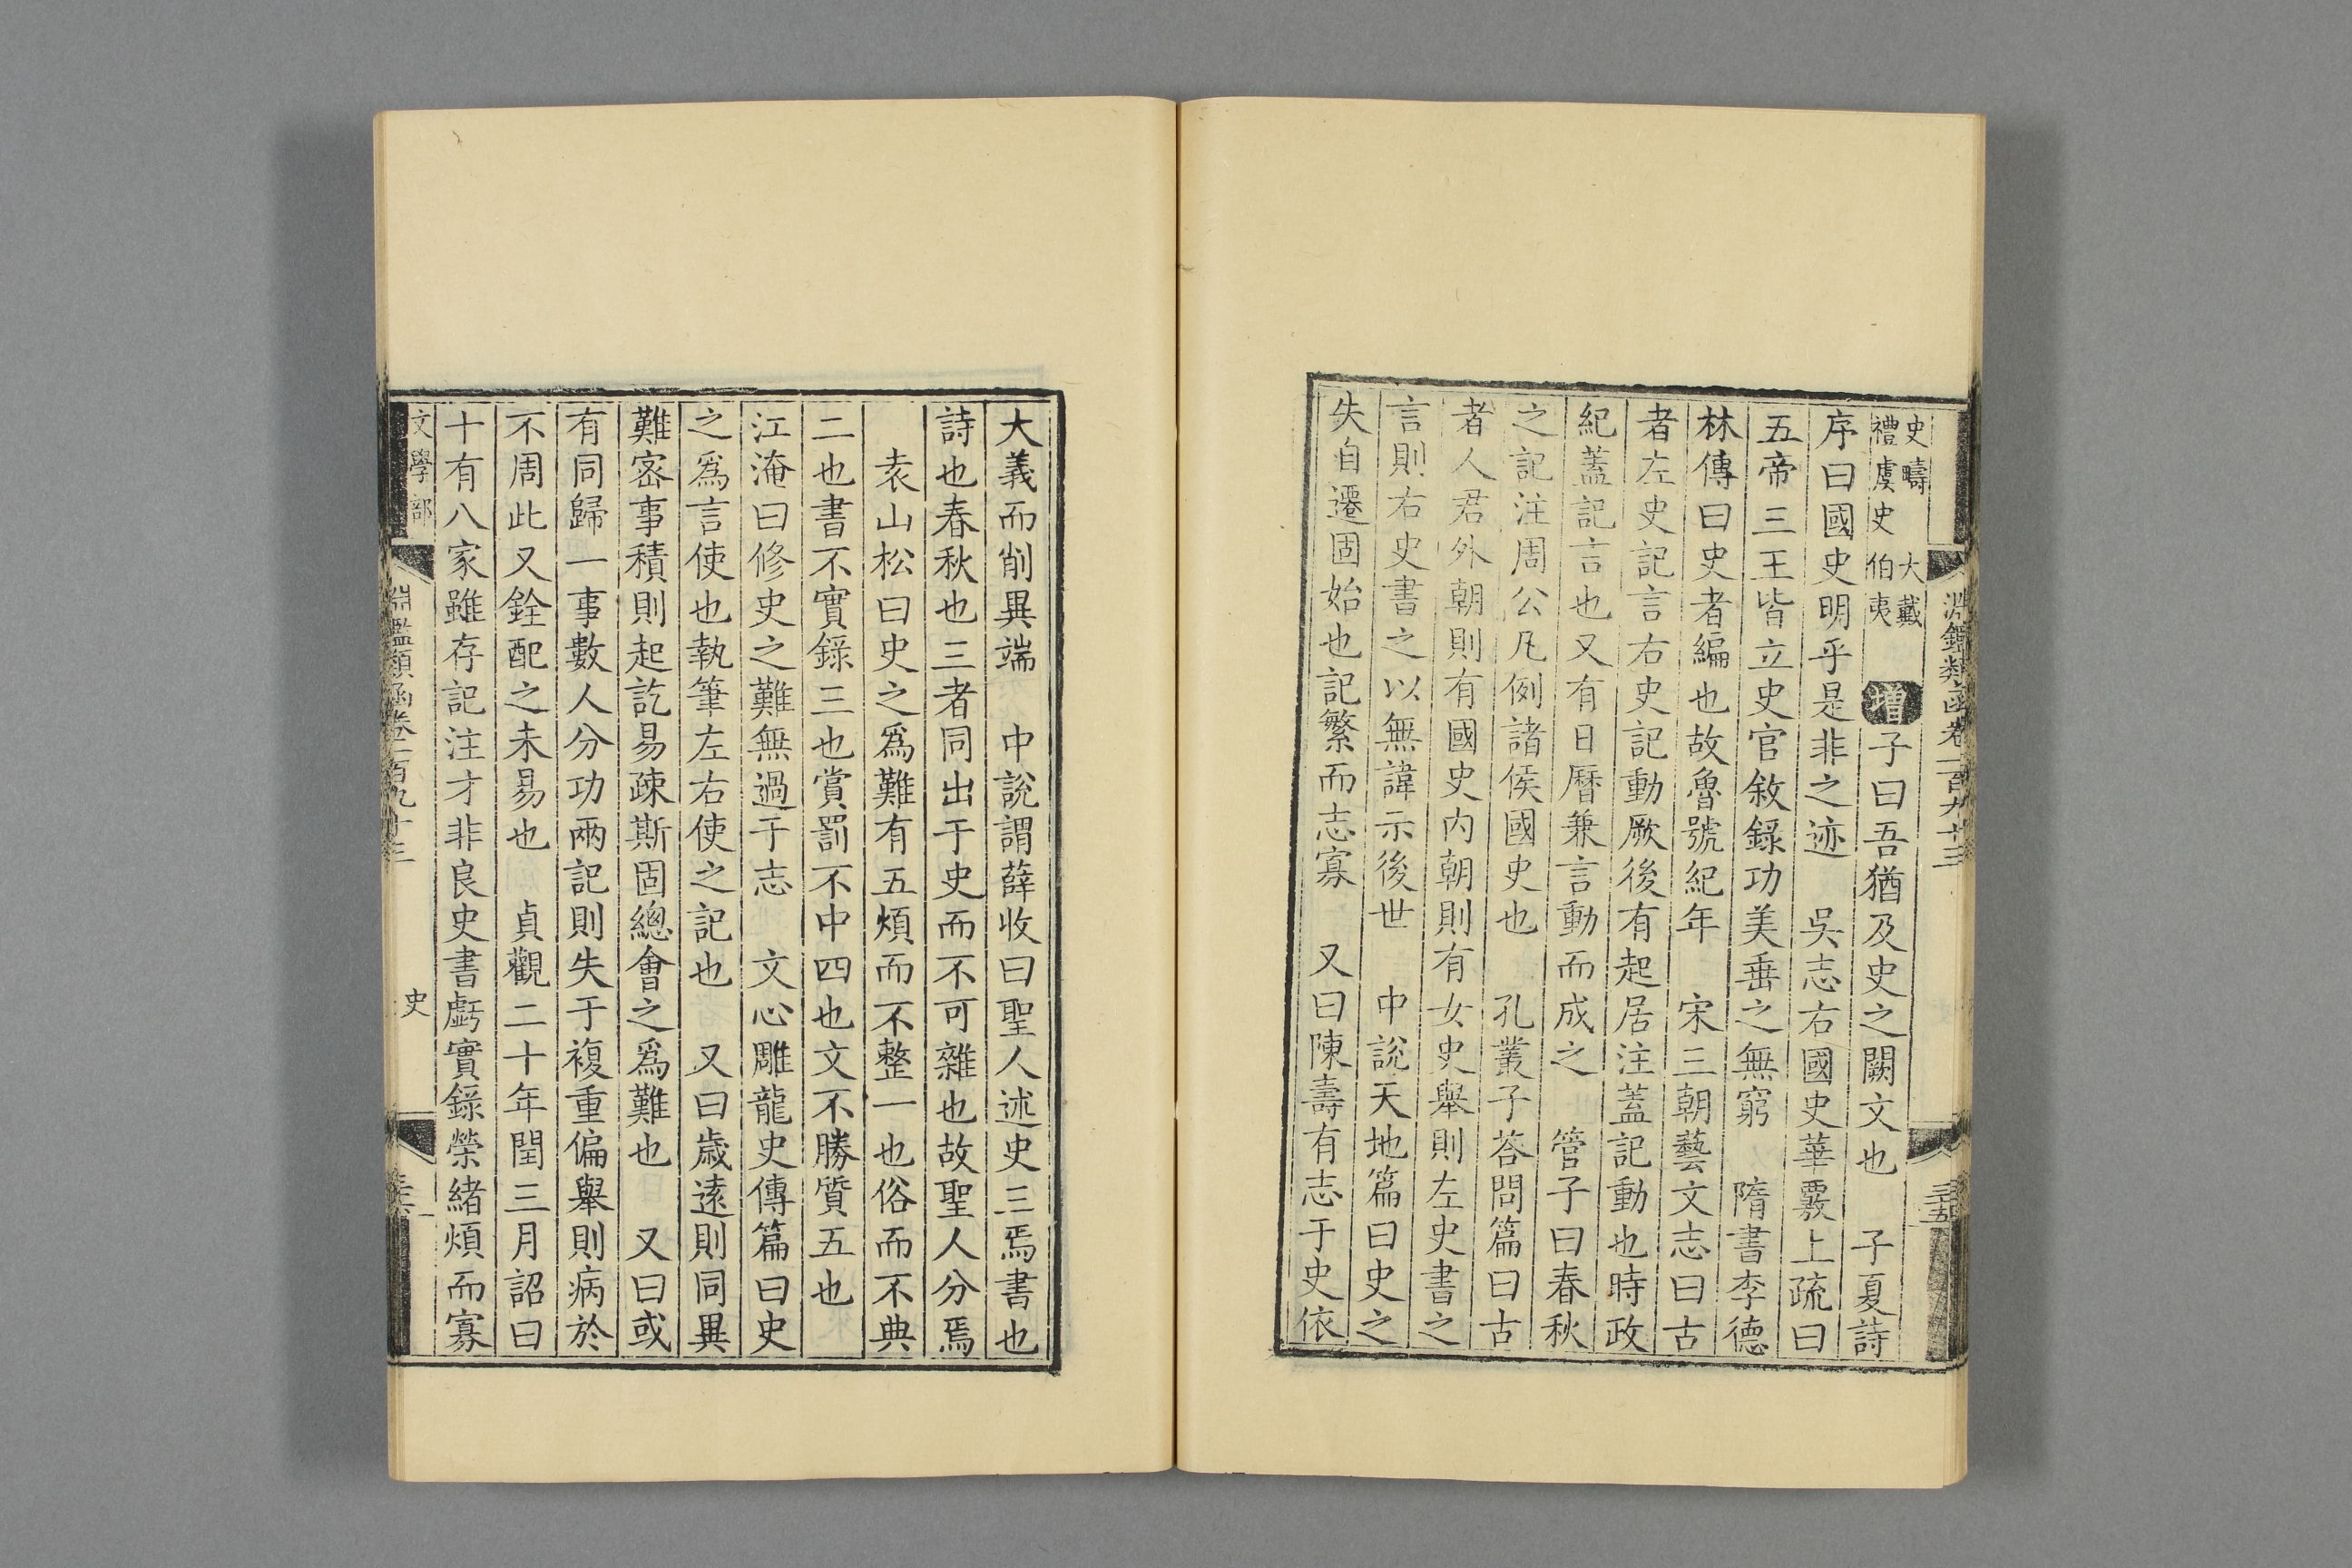 淵鑑類函卷一百九十三
三十五
史疇 大戴
禮虞史伯夷 增 子曰吾猶及史之闕文也 子夏詩
序曰國史明乎是非之迹 吳志右國史華覈上疏曰
五帝三王皆立史官敘錄功美垂之無窮 隋書李德
林傳曰史者編也故魯號紀年 宋三朝藝文志曰古
者左史記言右史記動厥後有起居注蓋記動也時政
紀蓋記言也又有日曆兼言動而成之 管子曰春秋
之記注周公凡例諸侯國史也 孔叢子荅問篇曰古
者人君外朝則有國史內朝則有女史舉則左史書之
言則右史書之以無諱示後世 中說天地篇曰史之
失自遷固始也記繁而志寡 又曰陳壽有志于史依
大義而削異端 中說謂薛收曰聖人述史三焉書也
詩也春秋也三者同出于史而不可雜也故聖人分焉
袁山松曰史之爲難有五煩而不整一也俗而不典
二也書不實錄三也賞罰不中四也文不勝質五也
江淹曰修史之難無過于志 文心雕龍史傳篇曰史
之爲言使也執筆左右使之記也 又曰歳遠則同異
難密事積則起訖易疎斯固總會之爲難也 又曰或
有同歸一事數人分功兩記則失于複重偏舉則病於
不周此又銓配之未易也 貞觀二十年閏三月詔曰
十有八家雖存記注才非良史書虧實錄榮緒煩而寡
文學部
淵鑑類函卷一百九十三
史